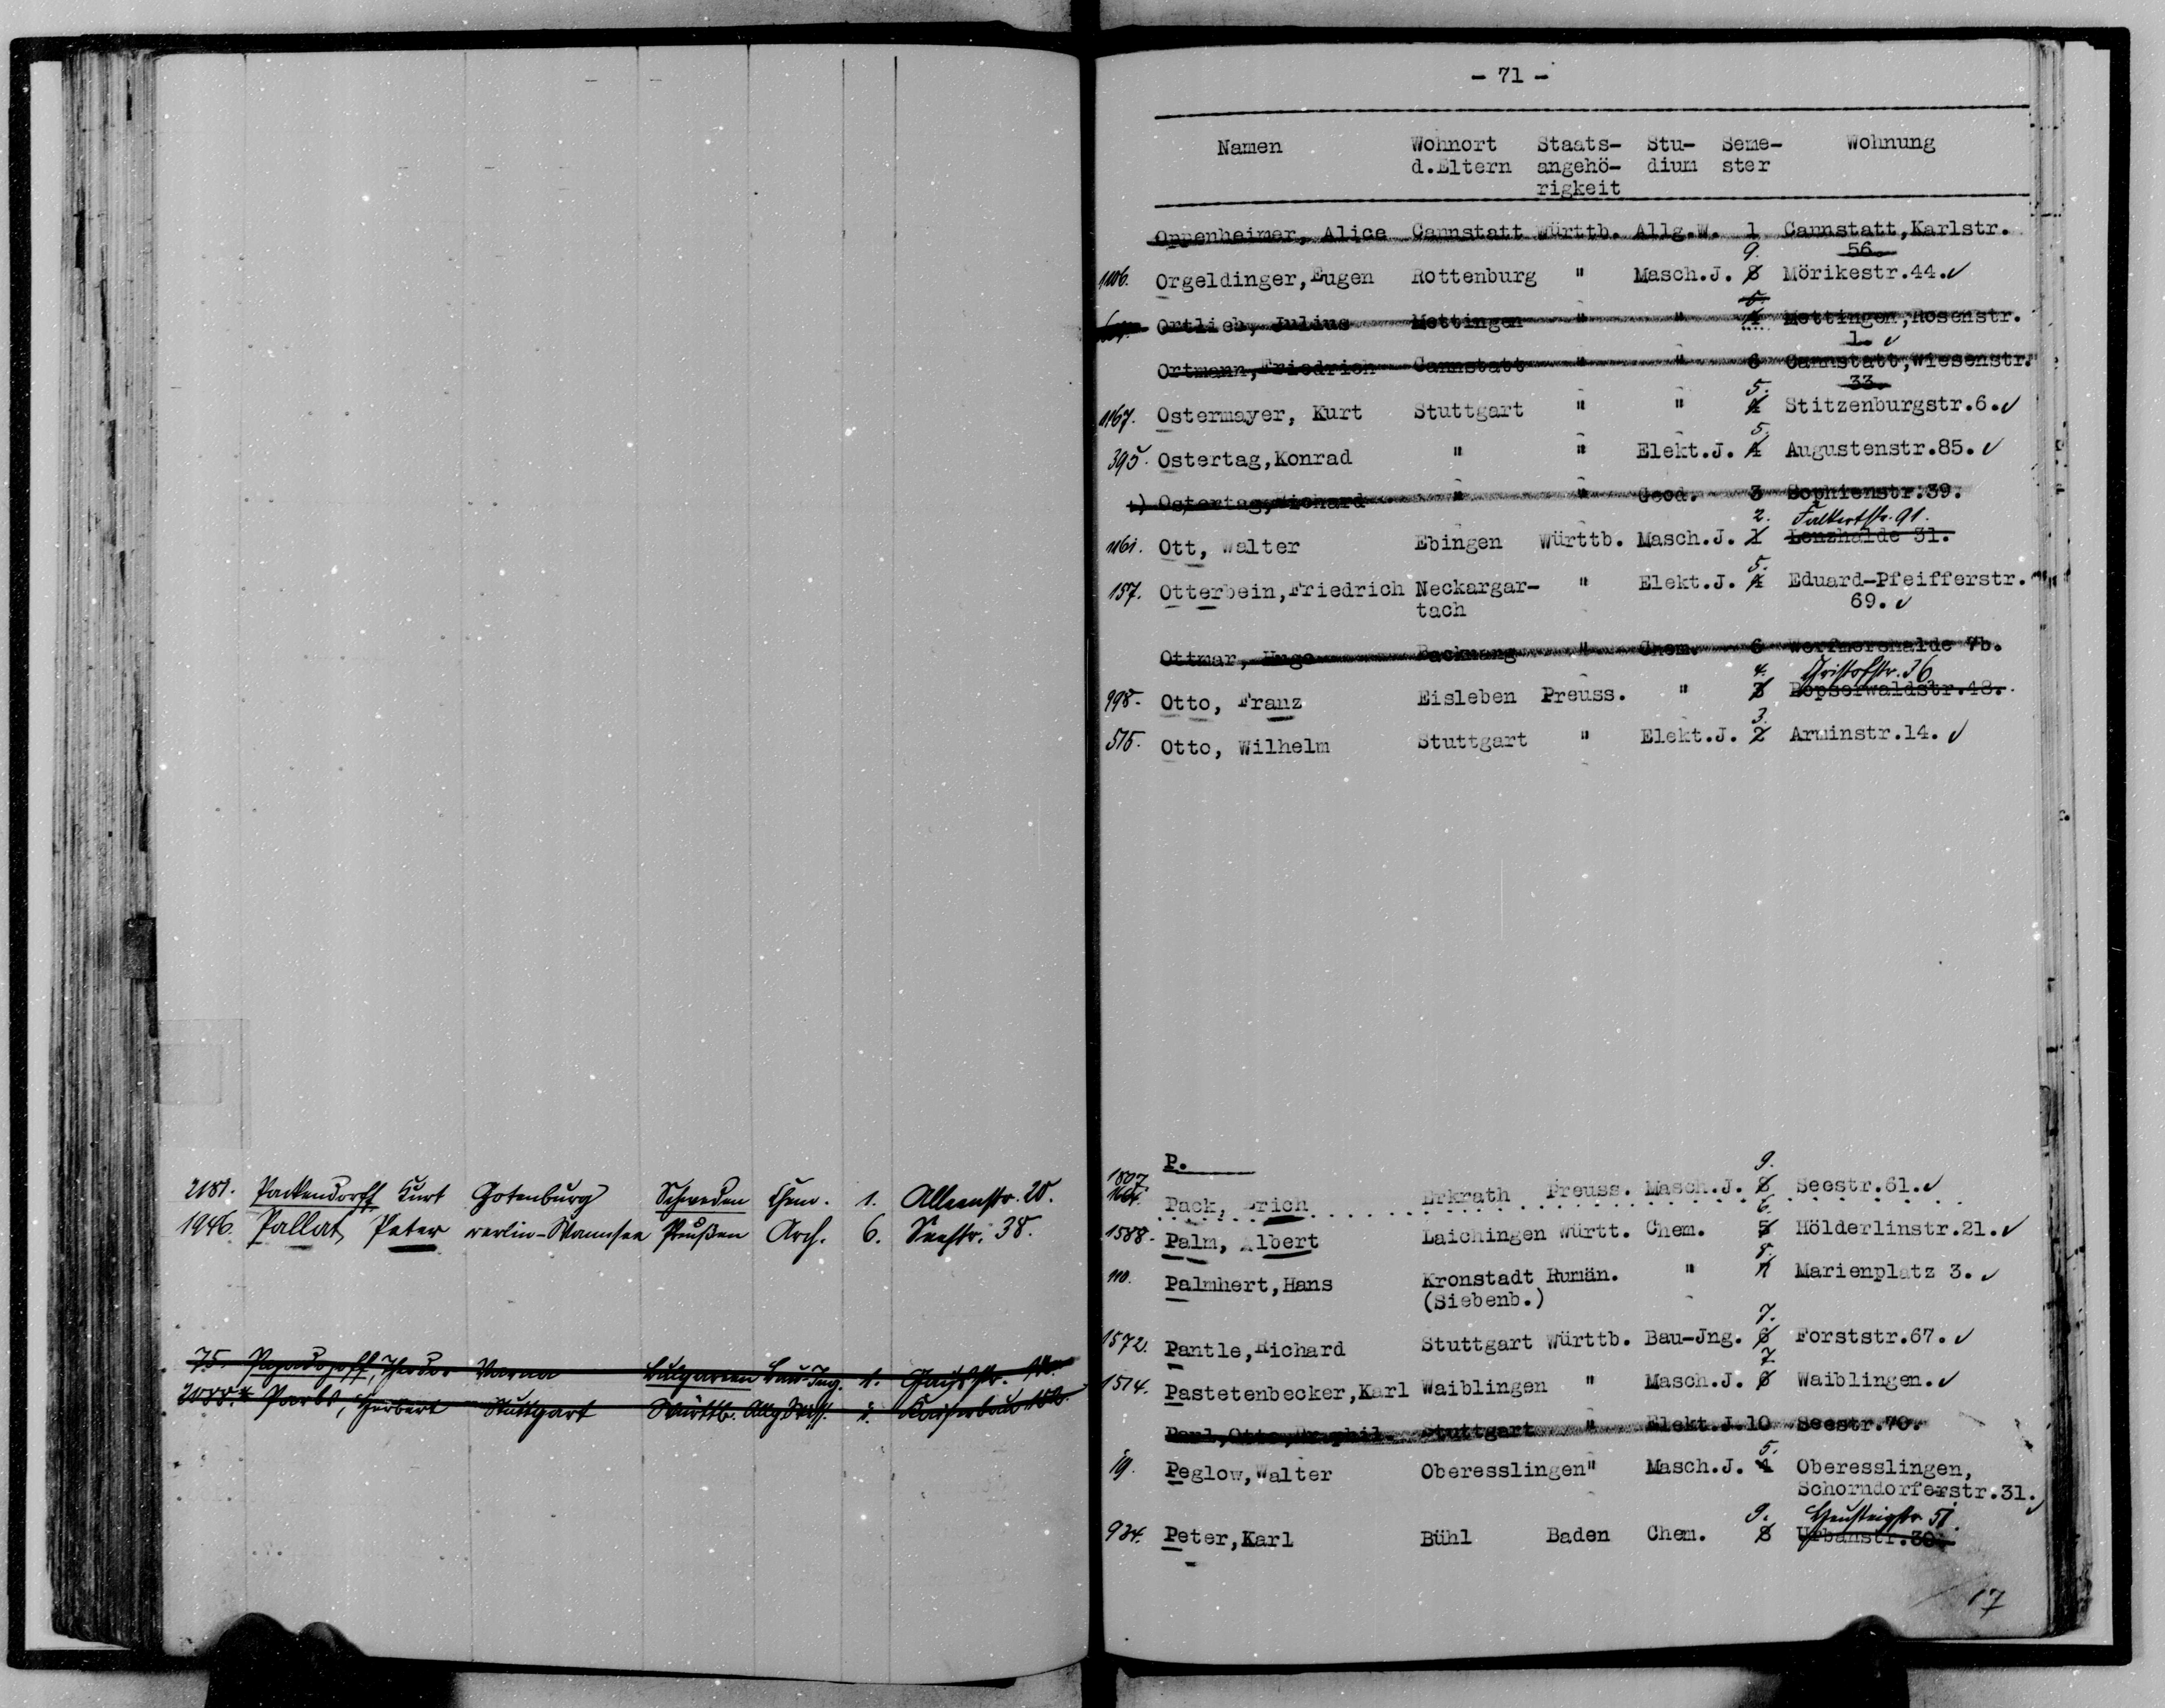 2181. Packendorff Kurt Gotenburg Schweden Chem. 1. Alleenstr. 20.
1946. Pallat, Peter Berlin-Wannsee Preußen Arch. 6. Seestr. 38.
75. Varna Bulgarien Bau-Ing. 1.
Herbert Stuttgart Württb. 1.
- 71 -
Namen Wohnort Staats- Stu- Seme- Wohnung
d.Eltern angehö- dium ster
rigkeit
Oppenheimer, Alice Cannstatt Württb. Allg.W. 1 Cannstatt,Karlstr.
9. 56.
1106. Orgeldinger,Eugen Rottenburg " Masch.J. 8 Mörikestr.44.✓
5.
Ortlieb, Julius Mettingen " " 4 Mettingen,Rosenstr.
1. ✓
Ortmann,Friedrich Cannstatt " " 6 Cannstatt,Wiesenstr.
5. 33.
1167. Ostermayer, Kurt Stuttgart " " 4 Stitzenburgstr.6.✓
5.
395. Ostertag,Konrad " " Elekt.J. 4 Augustenstr.85. ✓
Ostertag,Richard " " Geod. 3 Sophienstr.39.
2. Falkertstr. 91.
1161. Ott, Walter Ebingen Württb. Masch.J. 1 Lenzhalde 31.
5.
157. Otterbein,Friedrich Neckargar- " Elekt.J. 4 Eduard-Pfeifferstr.
tach 69. ✓
Ottmar, Hugo Backnang " Chem. 6 Werfmershalde 7b.
4. Christofstr. 36
998. Otto, Franz Eisleben Preuss. " 3 Bopserwaldstr.48.
3.
515. Otto, Wilhelm Stuttgart " Elekt.J. 2 Arminstr.14. ✓
P.
1807. 9.
Pack, Erich Erkrath Preuss. Masch.J. 8 Seestr.61.✓
6.
1588. Palm, Albert Laichingen Württ. Chem. 5 Hölderlinstr.21.✓
8.
110. Palmhert,Hans Kronstadt Rumän. " 7 Marienplatz 3. ✓
(Siebenb.)
7.
1572. Pantle,Richard Stuttgart Württb. Bau-Jng. 6 Forststr.67. ✓
7.
1514. Pastetenbecker,Karl Waiblingen " Masch.J. 6 Waiblingen.✓
Paul,Otto,Dr.phil. Stuttgart " Elekt.J.10 Seestr.70.
5.
19. Peglow,Walter Oberesslingen" Masch.J. 4 Oberesslingen,
Schorndorferstr.31.✓
9.
934. Peter,Karl Bühl Baden Chem. 8 Urbanstr.30.
17